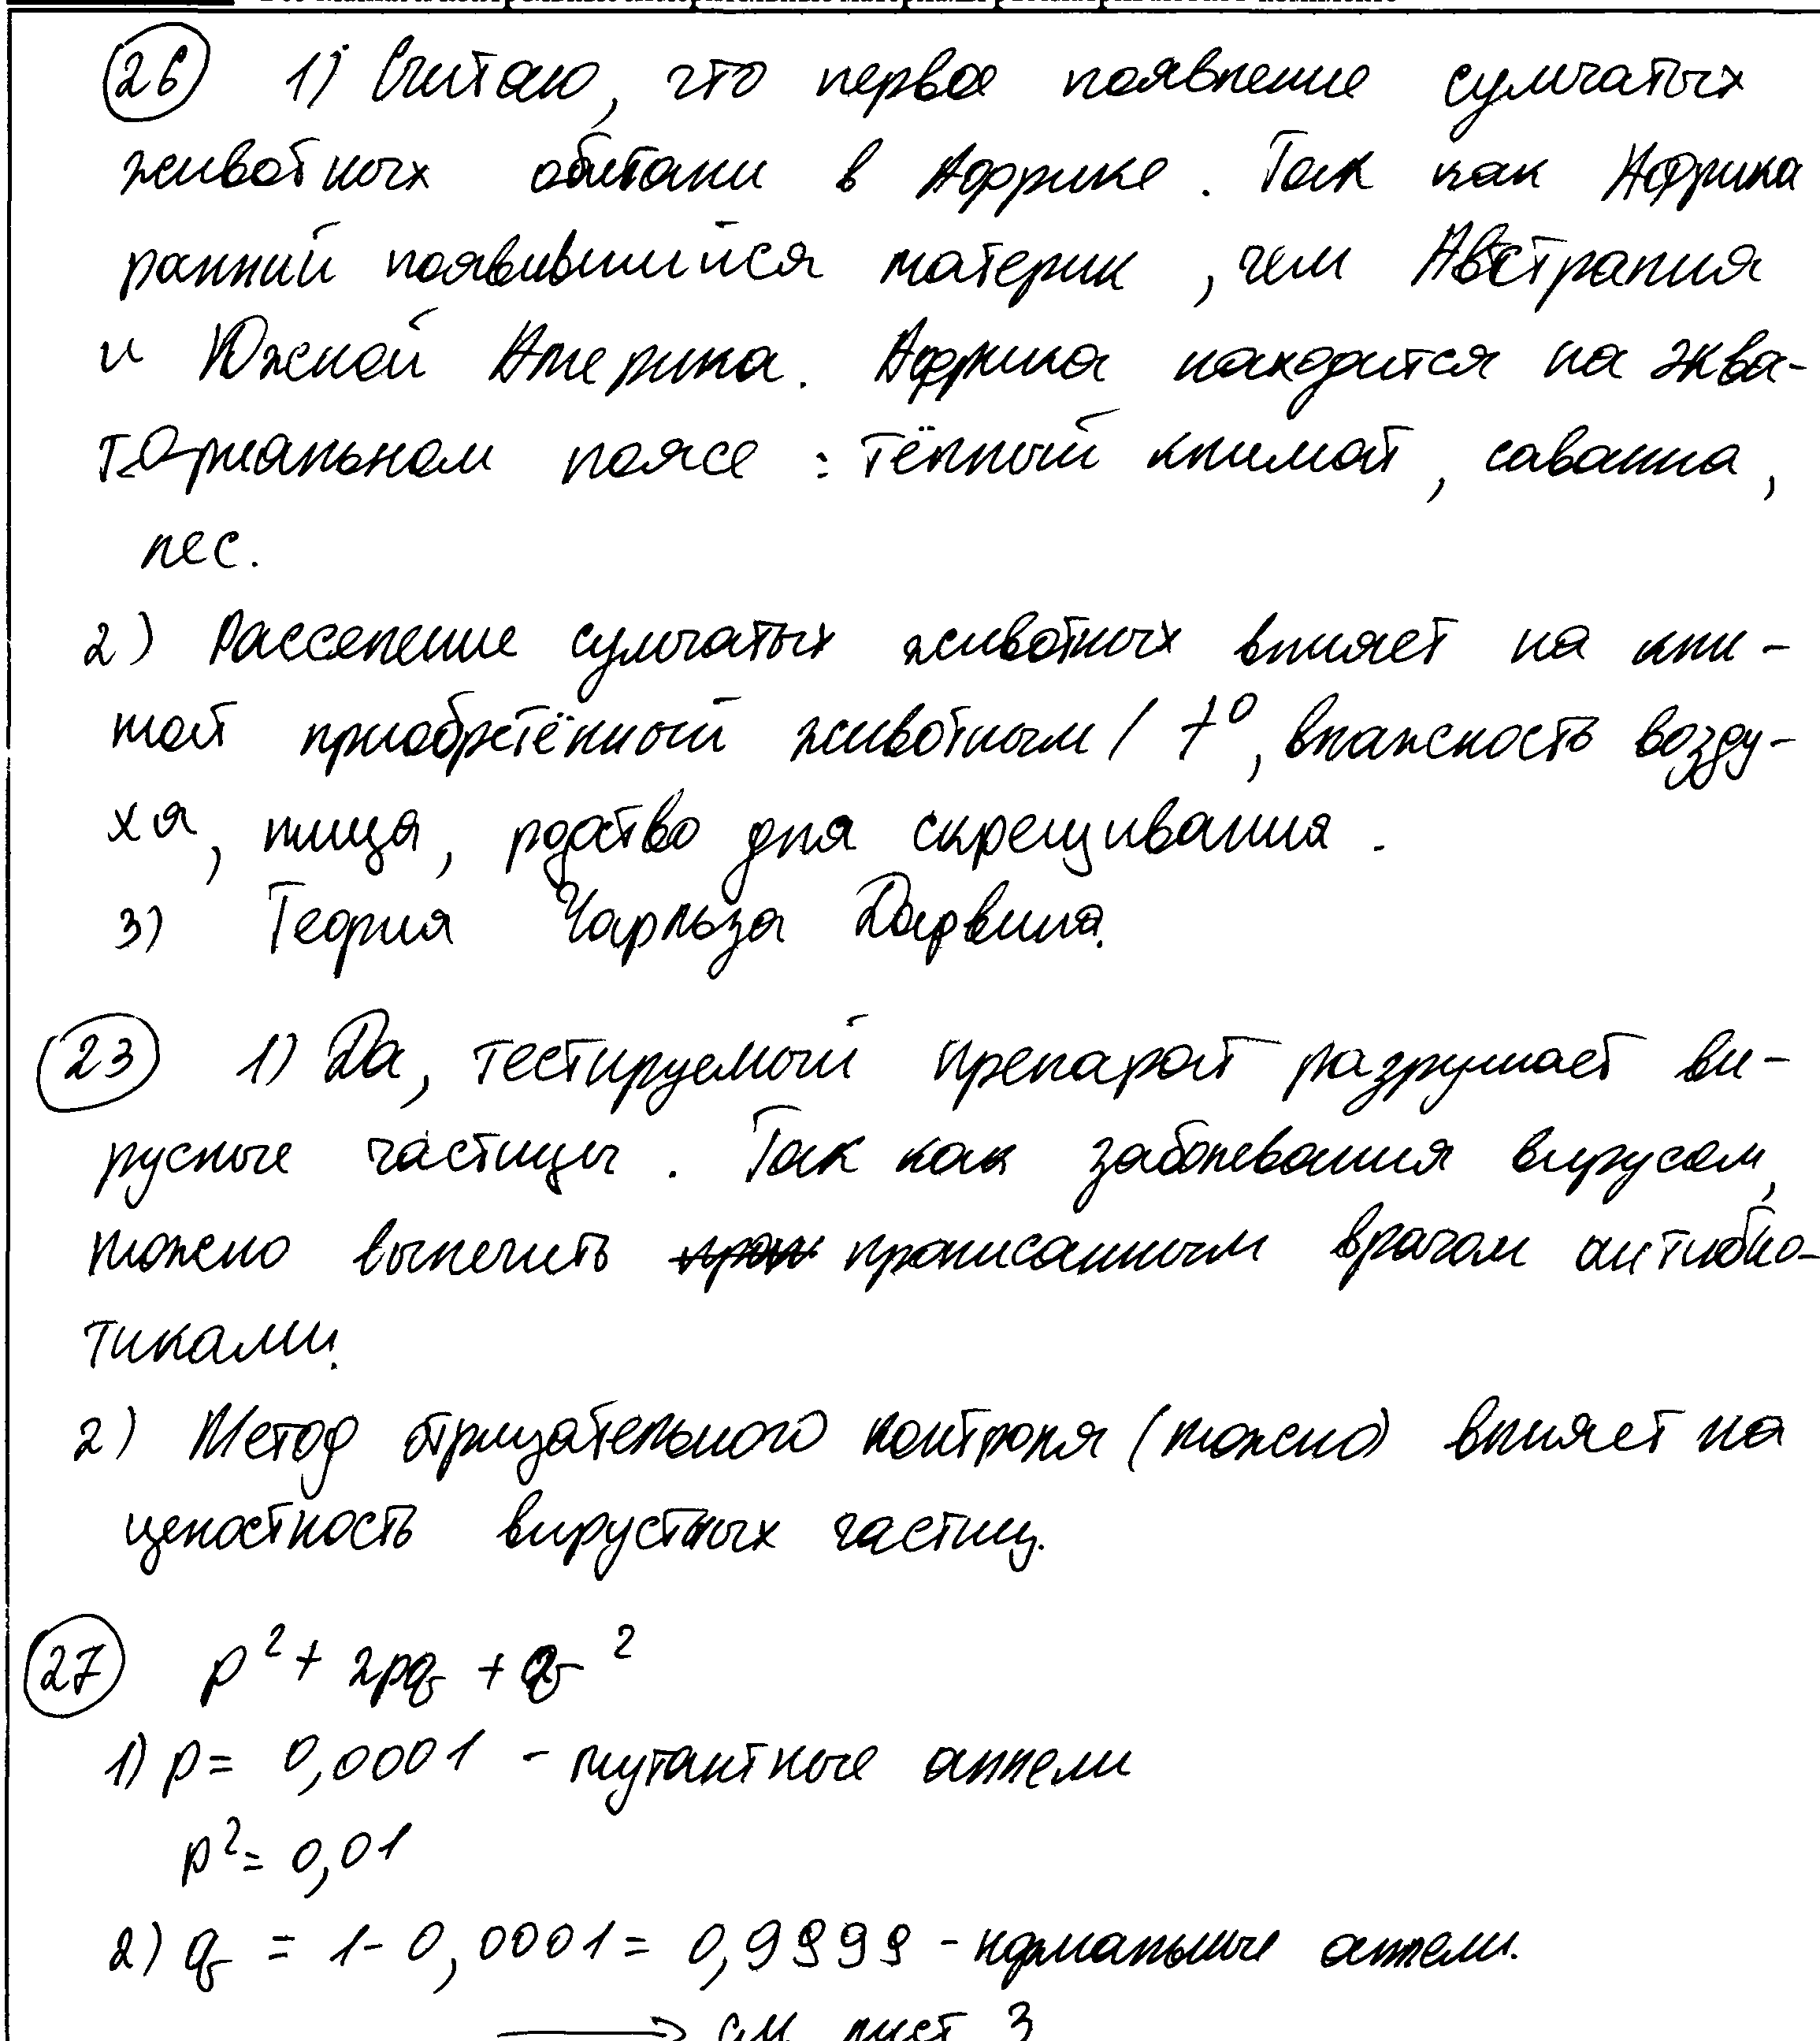 26 1) Считаю, что первое появление сумчатых
животных обитали в Африке. Так как Африка
ранний появившийся материк, чем Австралия
и Южной Америка. Африка находится на эква-
ториальном поясе: тёплый климат, саванна,
лес.
2) Расселение сумчатых животных влияет на кли-
мат приобретённый животным / t°, влажность возду-
ха, пища, родство для скрещивания.
3) Теория Чарльза Дарвина.
23 1) Да, тестируемый препарат разрушает ви-
русные частицы. Так как заболевания вирусом,
можно вылечить прописанным врачом антибио-
тиками.
2) Метод отрицательного контроля (можно) влияет на
целостность вирустных частиц.
27 p² + 2pq + q²
1) p = 0,0001 - мутантные аллели
p² = 0,01
2) q = 1 - 0,0001 = 0,9999 - нормальные аллели.
→ см лист 3